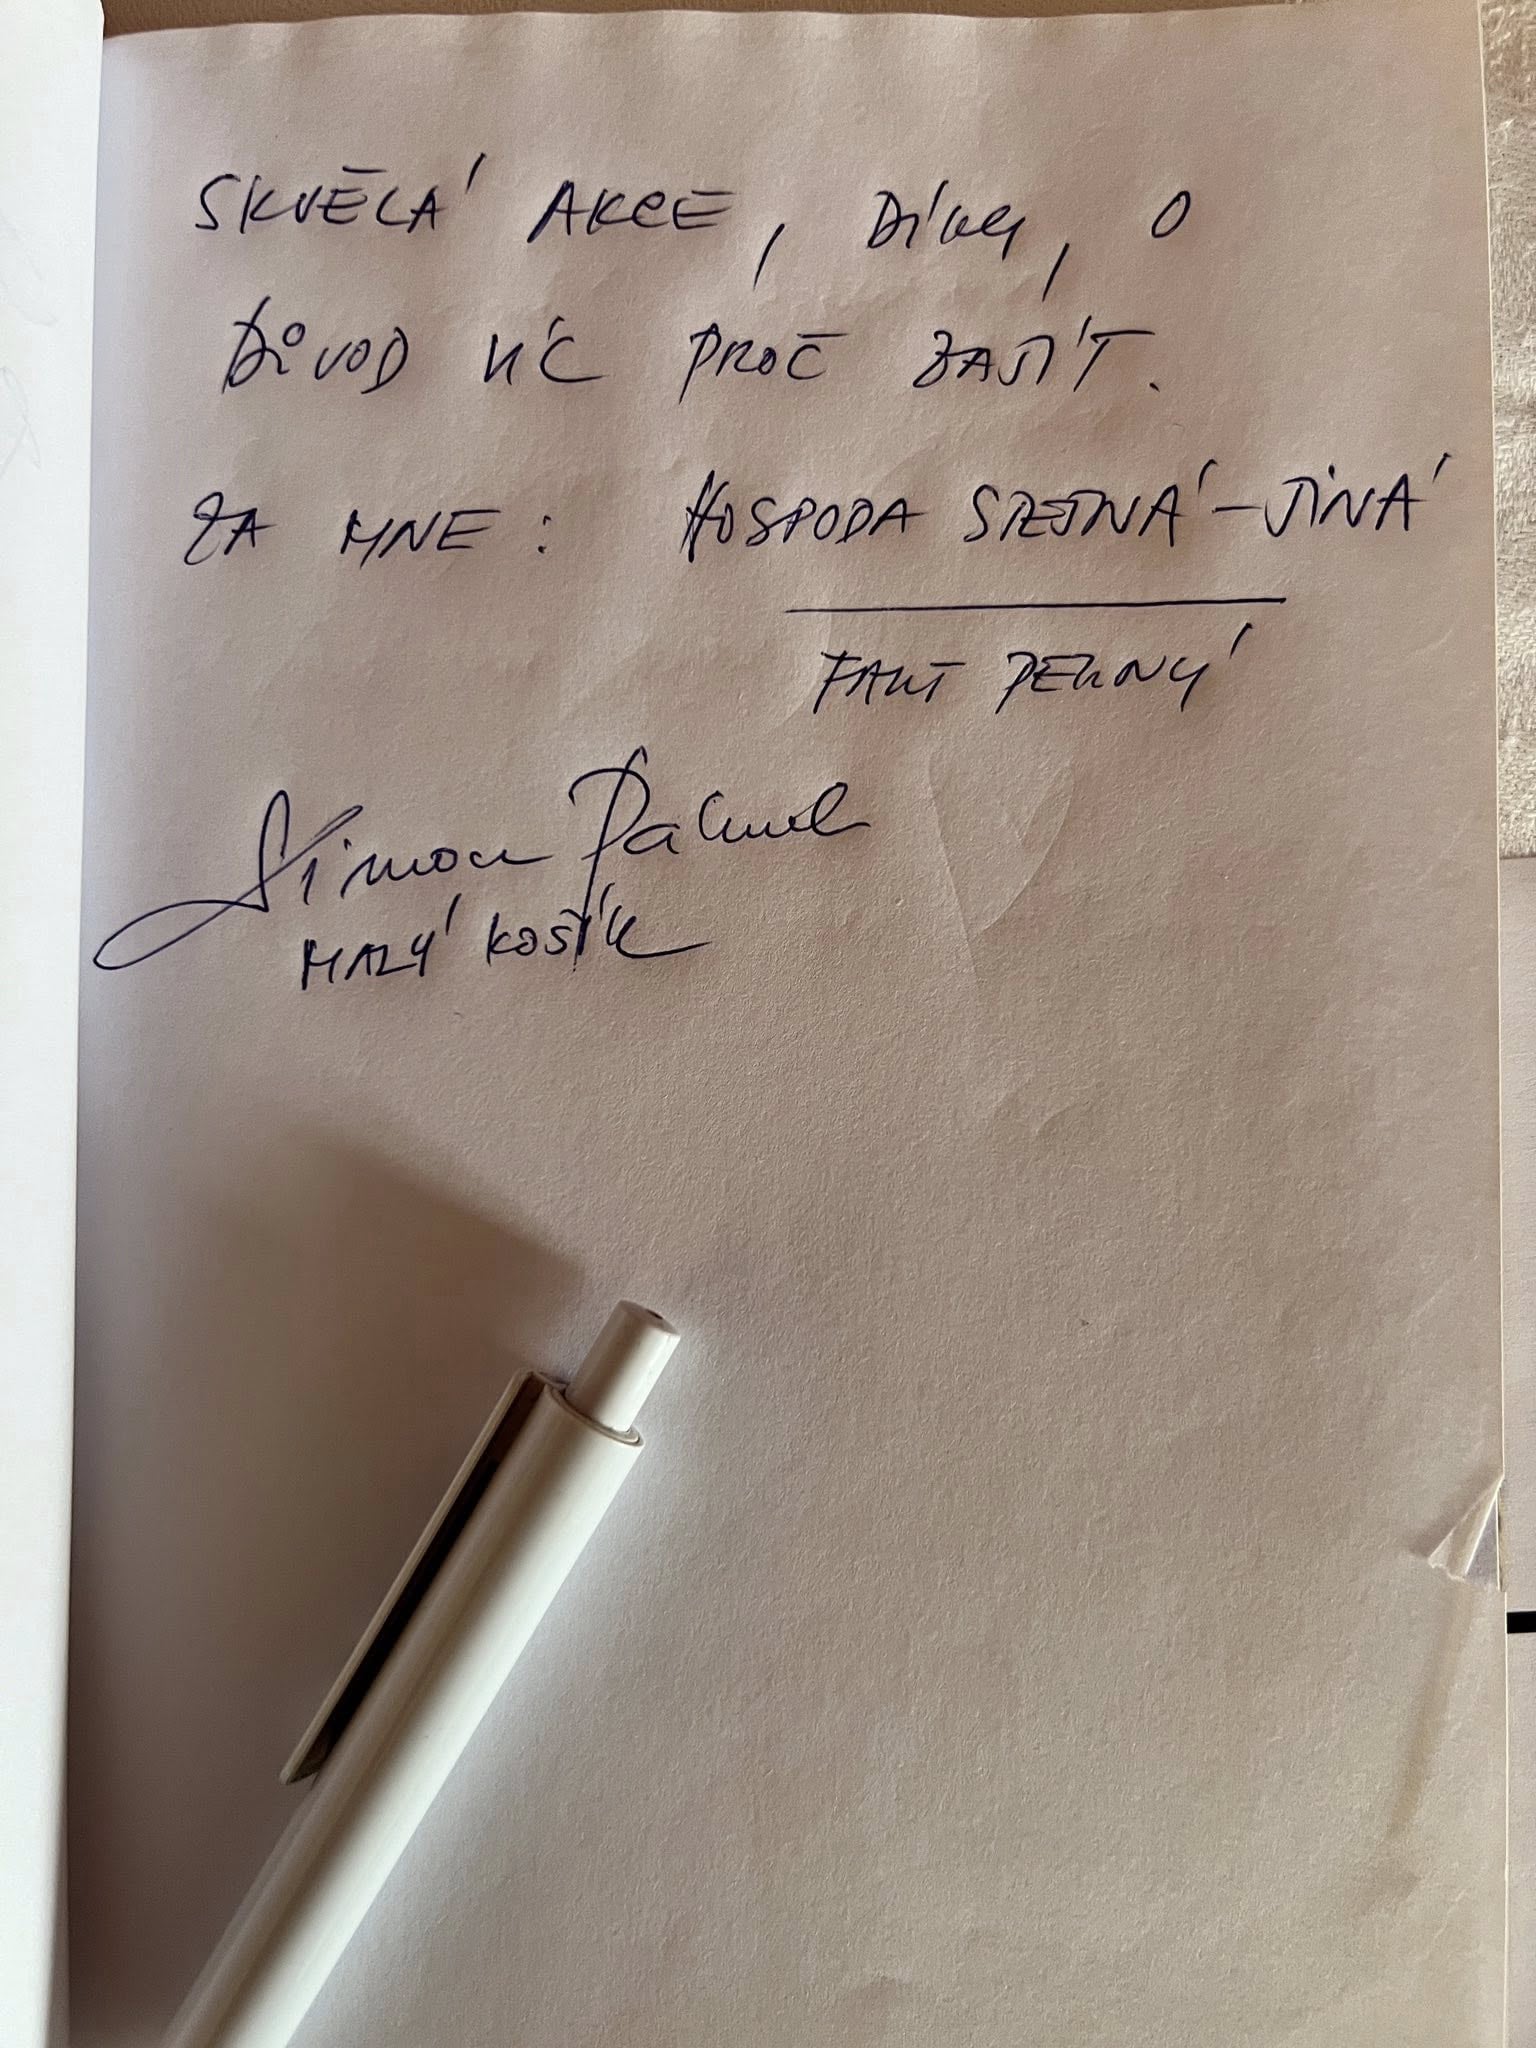 SKVĚLÁ AKCE, DÍKY, O
DŮVOD VÍC PROČ ZAJÍT.
ZA MNE: HOSPODA STEJNÁ-JINÁ
FAKT PEKNÝ
Šimon
MALÝ KOŠÍK